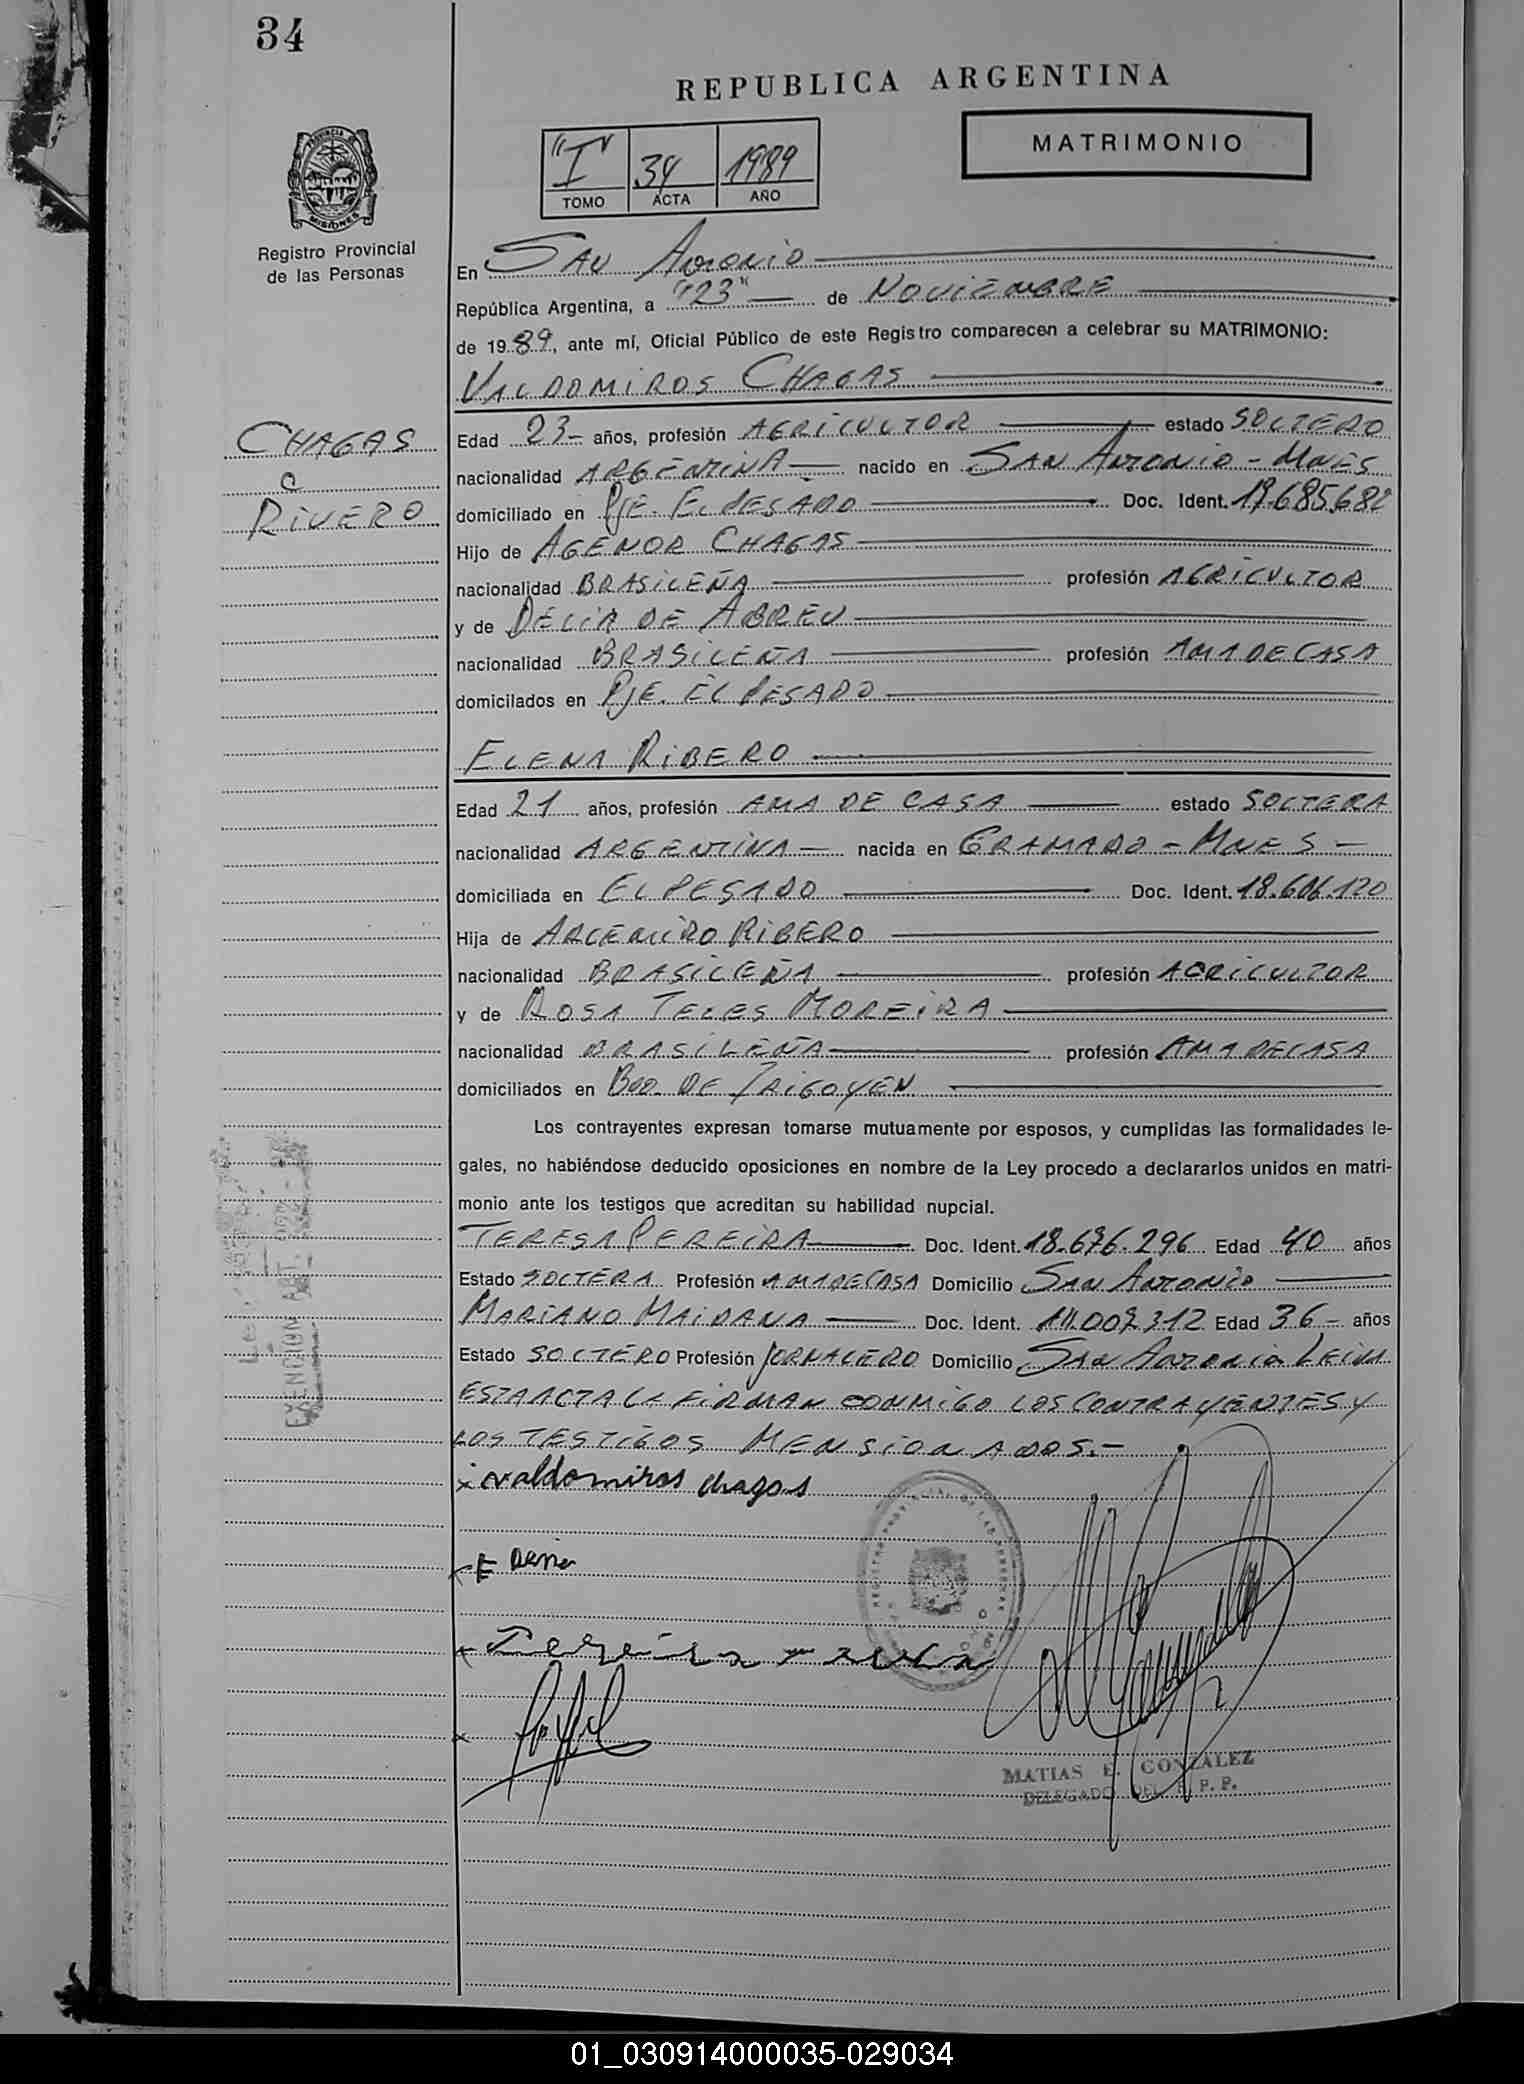 34
REPUBLICA ARGENTINA
MATRIMONIO
"I" 34 1989
TOMO ACTA AÑO
PROVINCIA DE
MISIONES
Registro Provincial
de las Personas
En SAN ANTONIO
República Argentina, a "23" de NOVIEMBRE
de 1989, ante mí, Oficial Público de este Registro comparecen a celebrar su MATRIMONIO:
VALDOMIROS CHAGAS
CHAGAS
C
RIVERO
Edad 23 años, profesión AGRICULTOR estado SOLTERO
nacionalidad ARGENTINA nacido en SAN ANTONIO - MNES
domiciliado en PJE. EL PESADO Doc. Ident. 19.685.682
Hijo de AGENOR CHAGAS
nacionalidad BRASILEÑA profesión AGRICULTOR
y de DELIA DE ABREU
nacionalidad BRASILEÑA profesión AMA DE CASA
domicilados en PJE. EL PESADO
ELENA RIBERO
Edad 21 años, profesión AMA DE CASA estado SOLTERA
nacionalidad ARGENTINA nacida en GRAMADO - MNES -
domiciliada en EL PESADO Doc. Ident. 18.606.120
Hija de ARGEMIRO RIBERO
nacionalidad BRASILEÑA profesión AGRICULTOR
y de ROSA TELES MOREIRA
nacionalidad BRASILEÑA profesión AMA DE CASA
domiciliados en BDO. DE IRIGOYEN
Los contrayentes expresan tomarse mutuamente por esposos, y cumplidas las formalidades le-
gales, no habiéndose deducido oposiciones en nombre de la Ley procedo a declararlos unidos en matri-
monio ante los testigos que acreditan su habilidad nupcial.
TERESA PEREIRA Doc. Ident. 18.676.296 Edad 40 años
Estado SOLTERA Profesión AMA DE CASA Domicilio SAN ANTONIO
MARIANO MAIDANA Doc. Ident. 11.007.312 Edad 36 años
Estado SOLTERO Profesión JORNALERO Domicilio SAN ANTONIO LEIDA
ESTA ACTA LA FIRMAN CONMIGO LOS CONTRAYENTES Y
LOS TESTIGOS MENSIONADOS.-
EXENCION ART.
x valdomiros chagas
MATIAS E. GONZALEZ
DELEGADO DEL R. P. P.
01_030914000035-029034